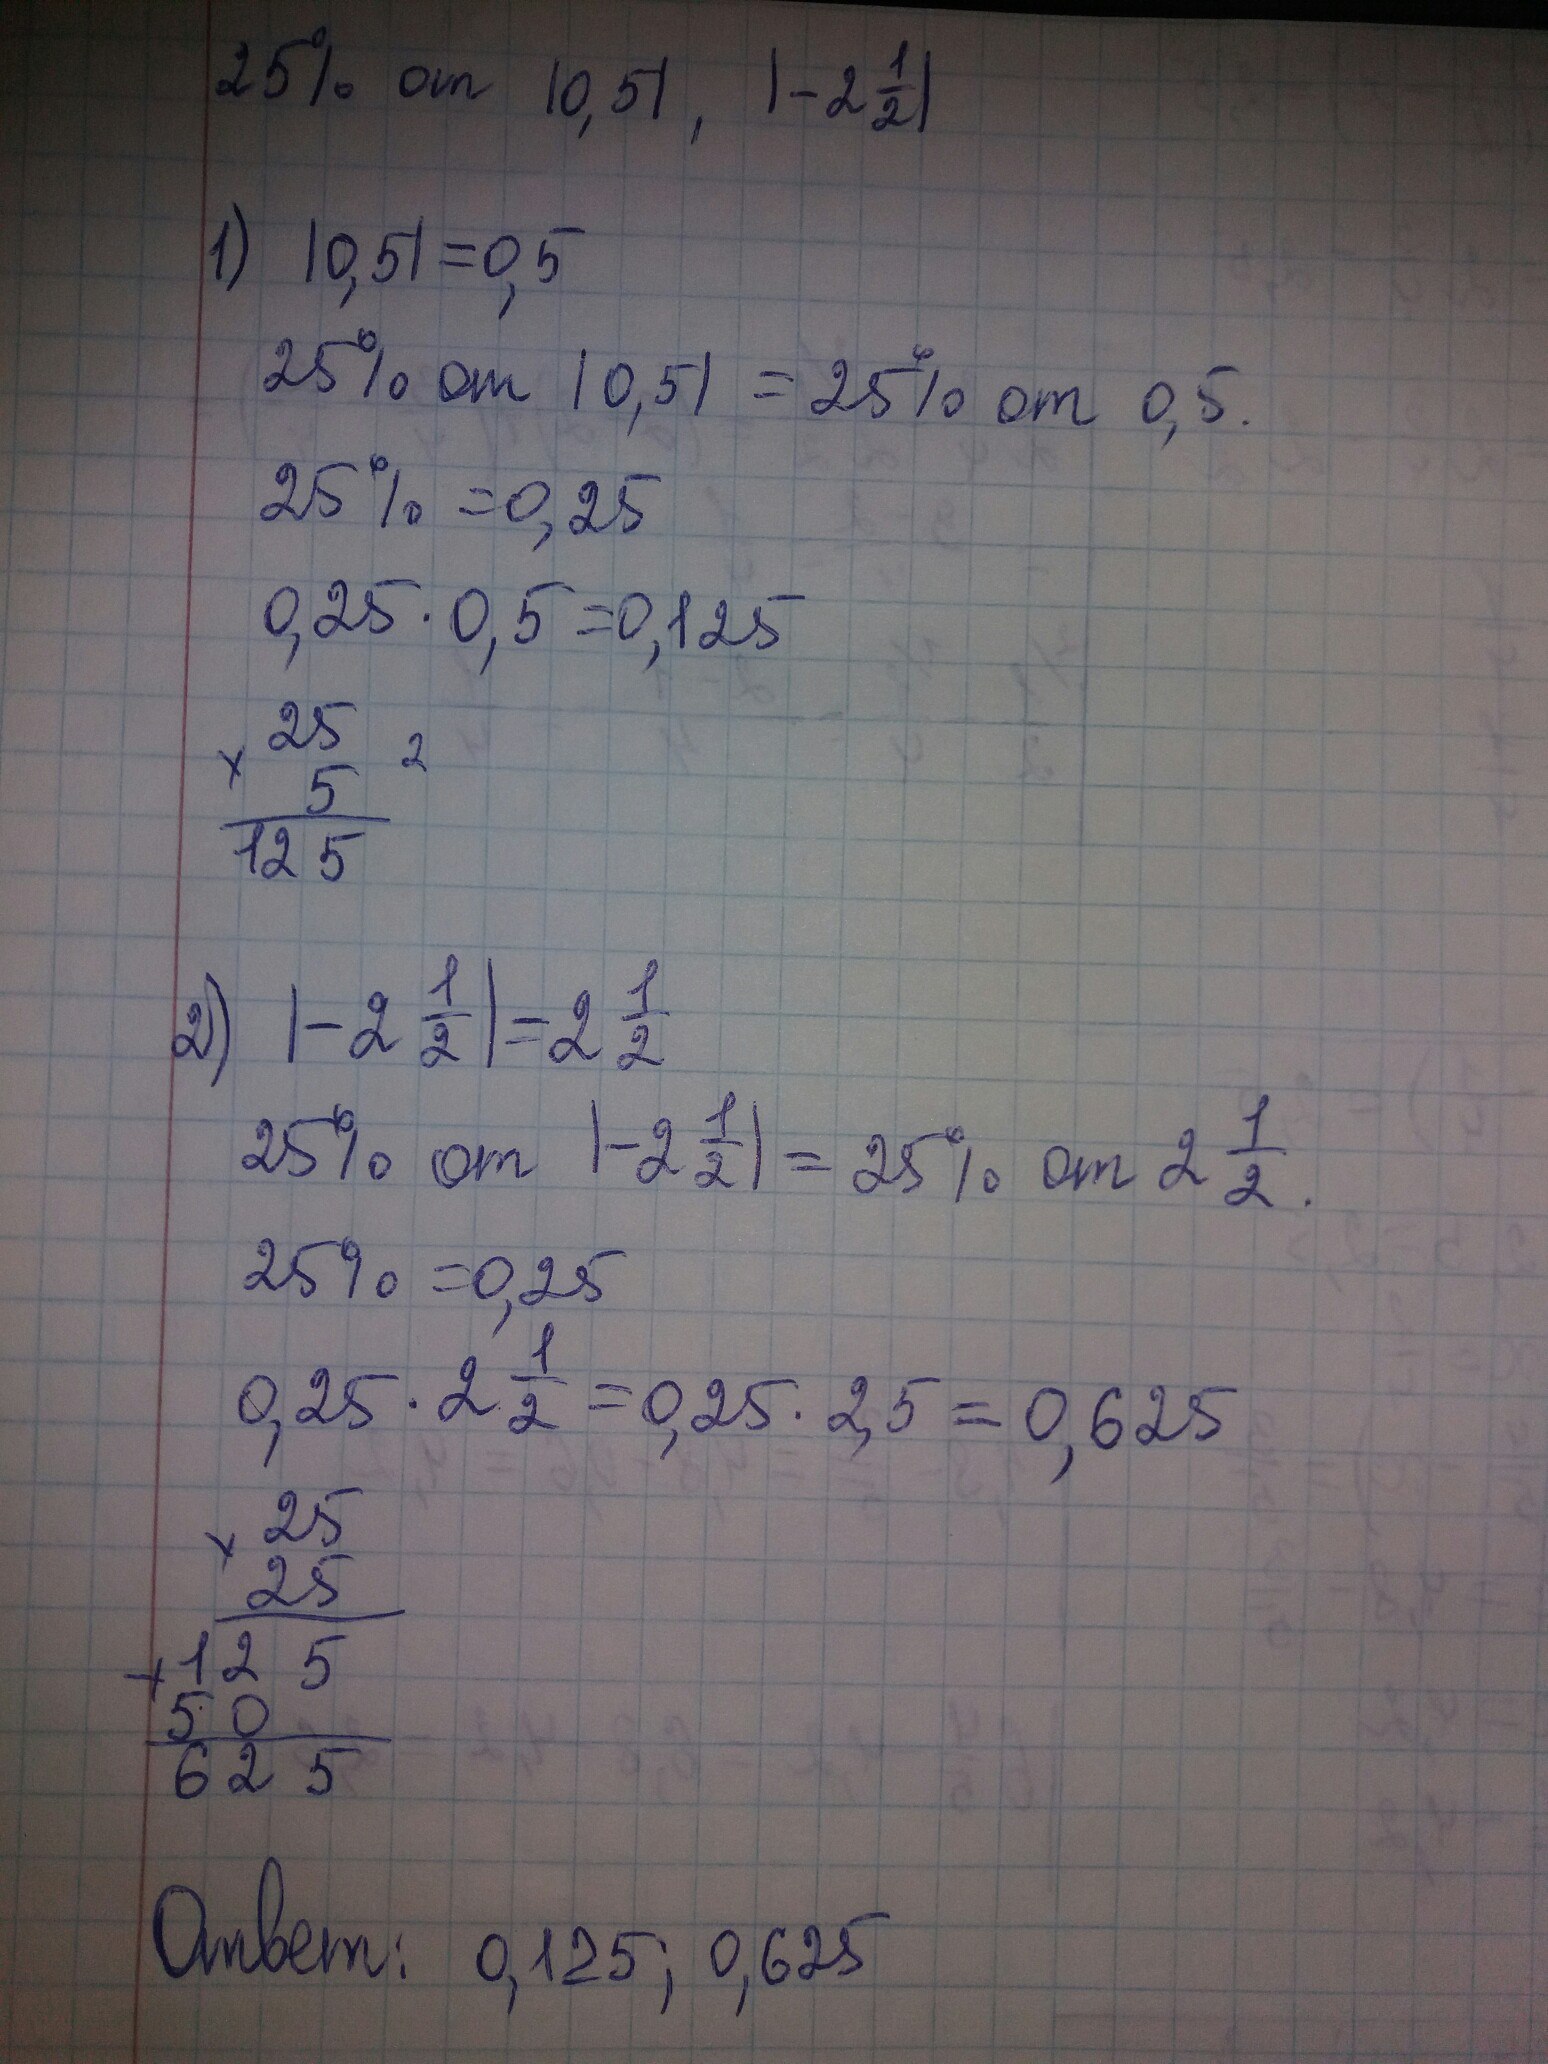 25% от |0,5|, |-2 1/2|
1) |0,5|=0,5
25% от |0,5| = 25% от 0,5.
25% =0,25
0,25·0,5=0,125
25
× 2
5
125
2) |-2 1/2|=2 1/2
25% от |-2 1/2| = 25% от 2 1/2.
25% =0,25
0,25·2 1/2=0,25·2,5=0,625
× 25
25
+125
50
625
Ответ: 0,125; 0,625